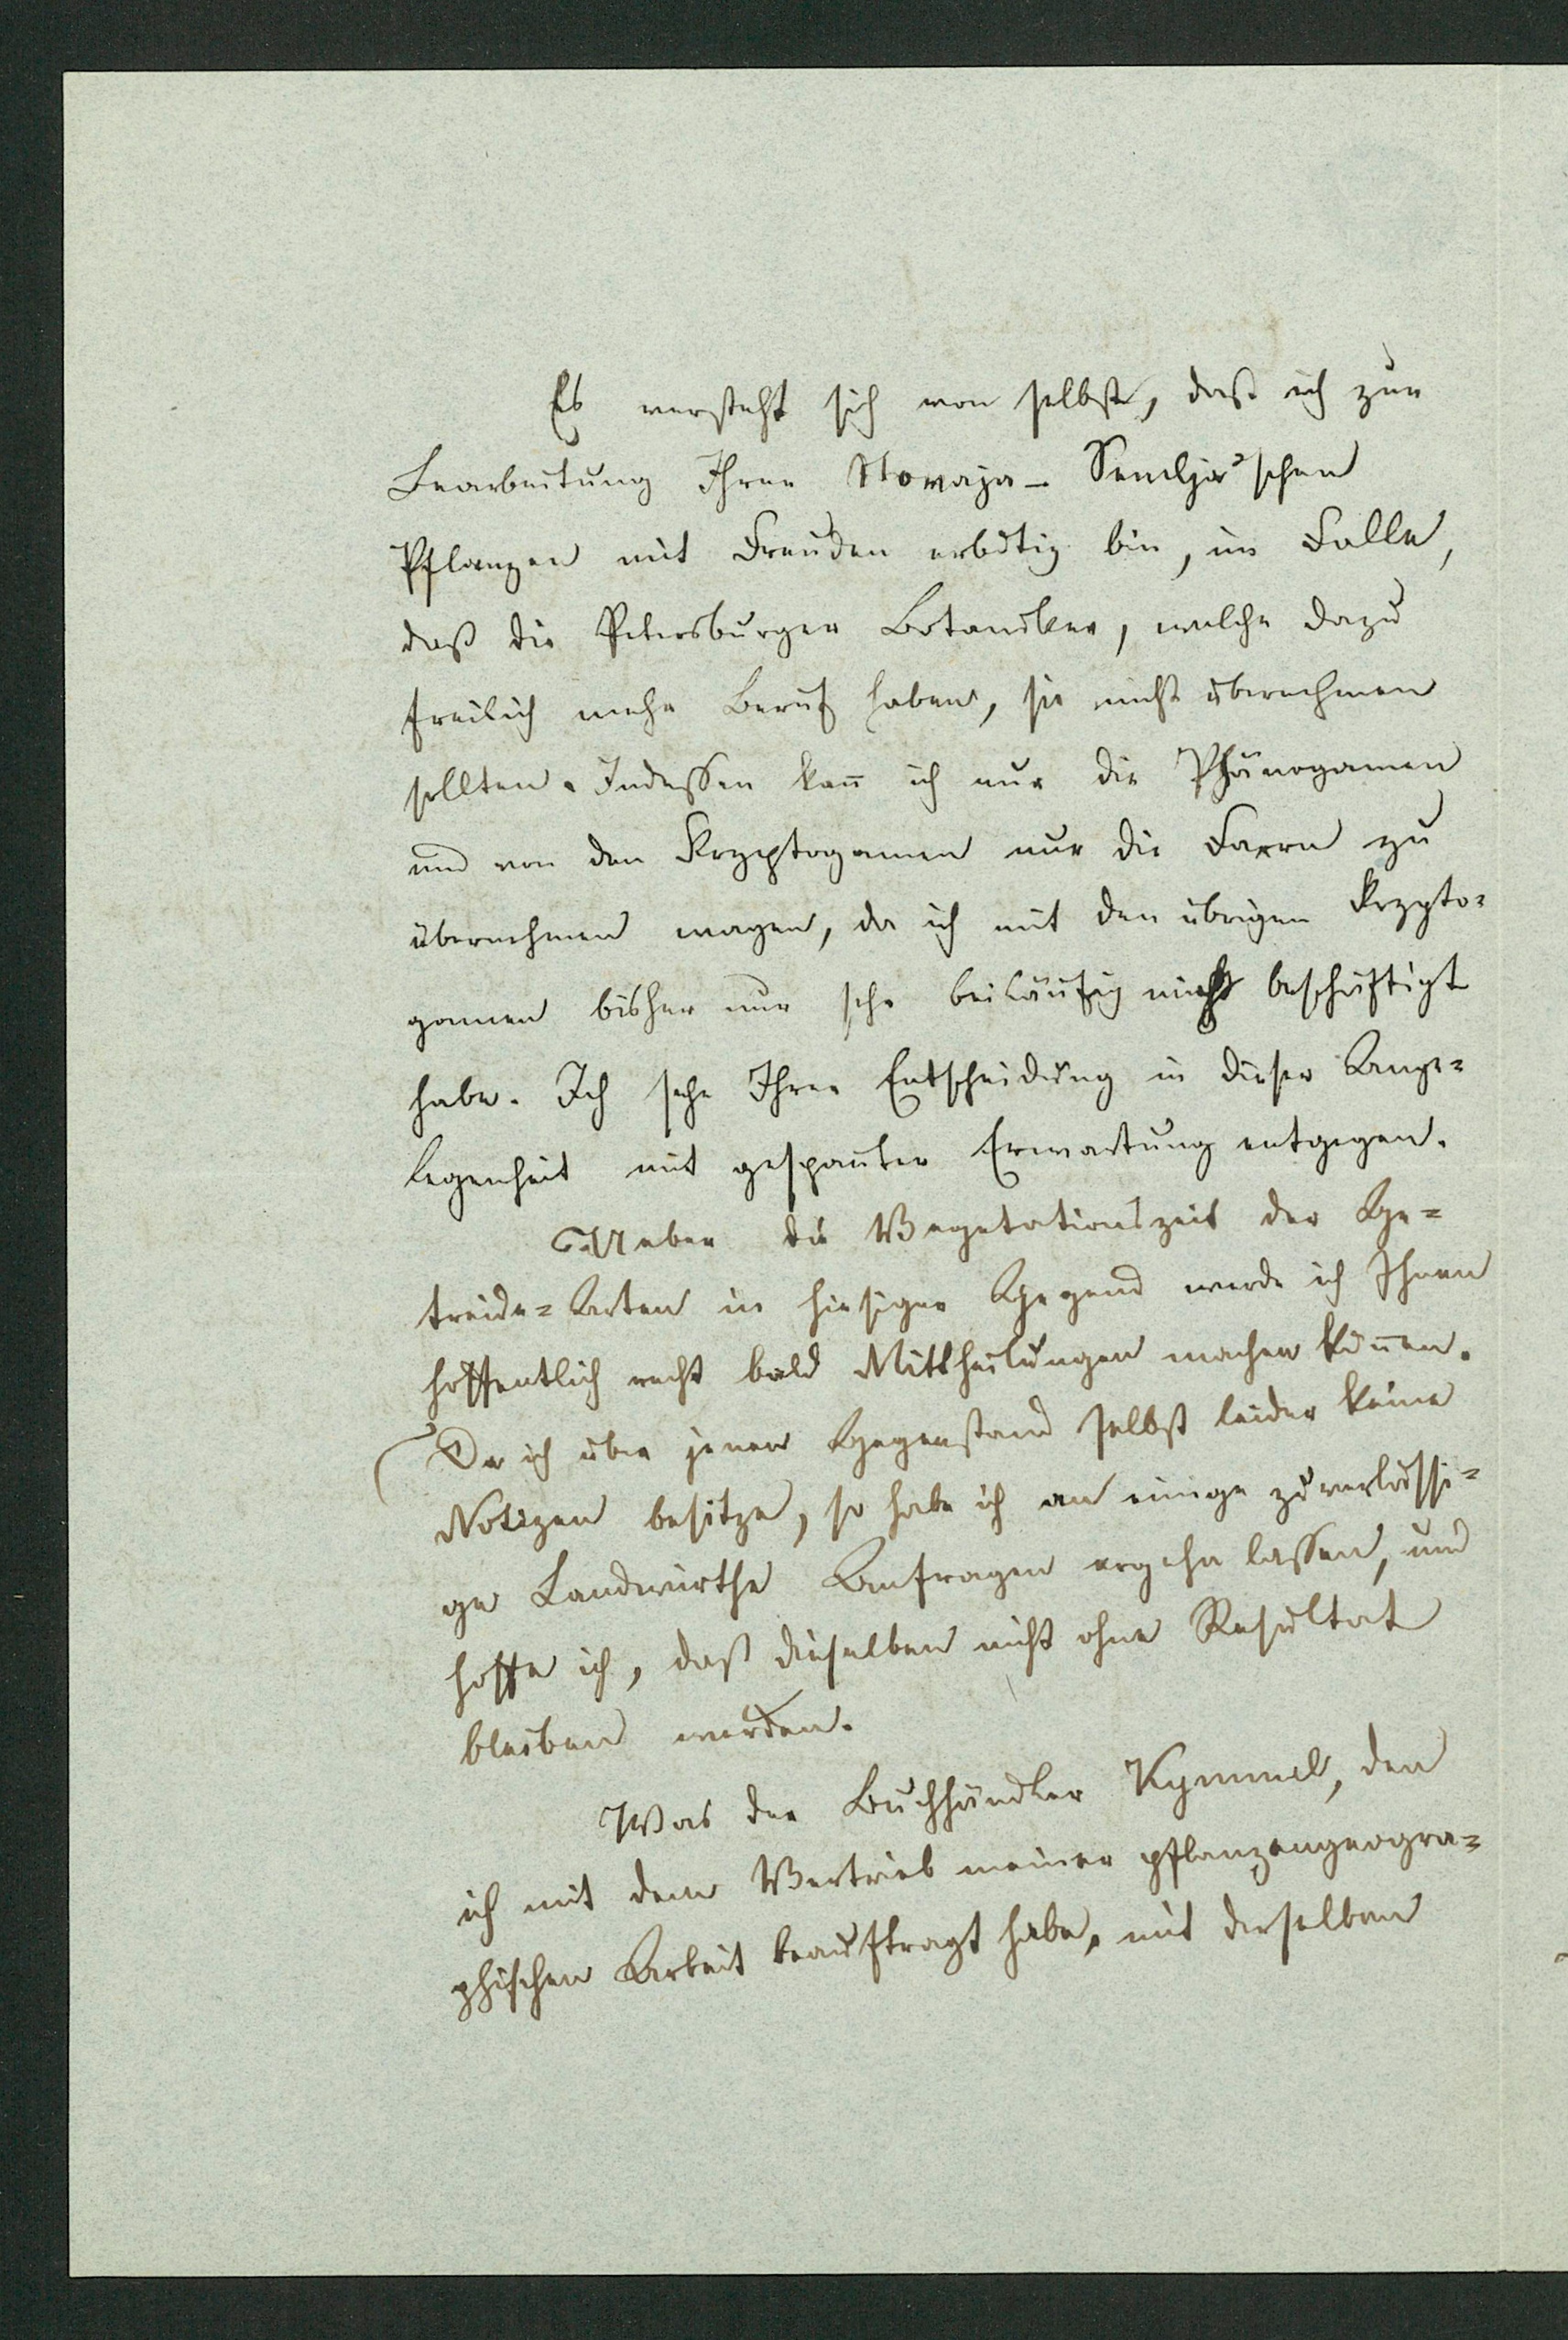 Es versteht sich von selbst, daß ich zur
Bearbeitung Ihrer Novaja-Semlja'schen
Pflanzen mit Freuden erbötig bin, im Falle,
daß die Petersburger Botaniker, welche dazu
freilich mehr Beruf haben, sie nicht übernehmen
sollten. Indessen kañ ich nur die Phänogamen
und von den Kryptogamen nur die Farrn zu
übernehmen wagen, da ich mit den übrigen Krypto=
gamen bisher nur sehr beiläufig mich beschäftigt
habe. Ich sehe Ihrer Entscheidung in dieser Ange=
legenheit mit gespañter Erwartung entgegen.
Ueber die Vegetationszeit der Ge=
treide=Arten in hiesiger Gegend werde ich Ihnen
hoffentlich recht bald Mittheilungen machen köñen.
Da ich über jenen Gegenstand selbst leider keine
Notizen besitze, so habe ich an einige zuverlässi=
ge Landwirthe Anfragen ergehn lassen, und
hoffe ich, daß dieselben nicht ohne Resultat
bleiben werden.
Was der Buchhändler Kymmel, den
ich mit dem Vertrieb meiner pflanzengeogra=
phischen Arbeit beauftragt habe, mit derselben